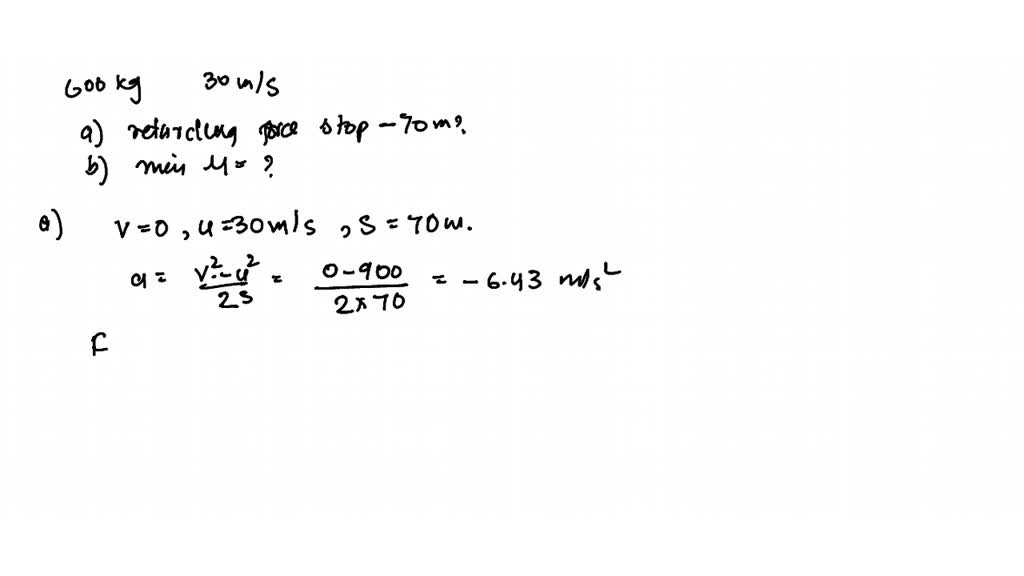 600 kg 30 m/s
a) retarding force stop - 70m?
b) min μ = ?
a) v = 0 , u = 30 m/s , s = 70m.
a = v² - u² / 2s = 0 - 900 / 2 × 70 = - 6.43 m/s²
F